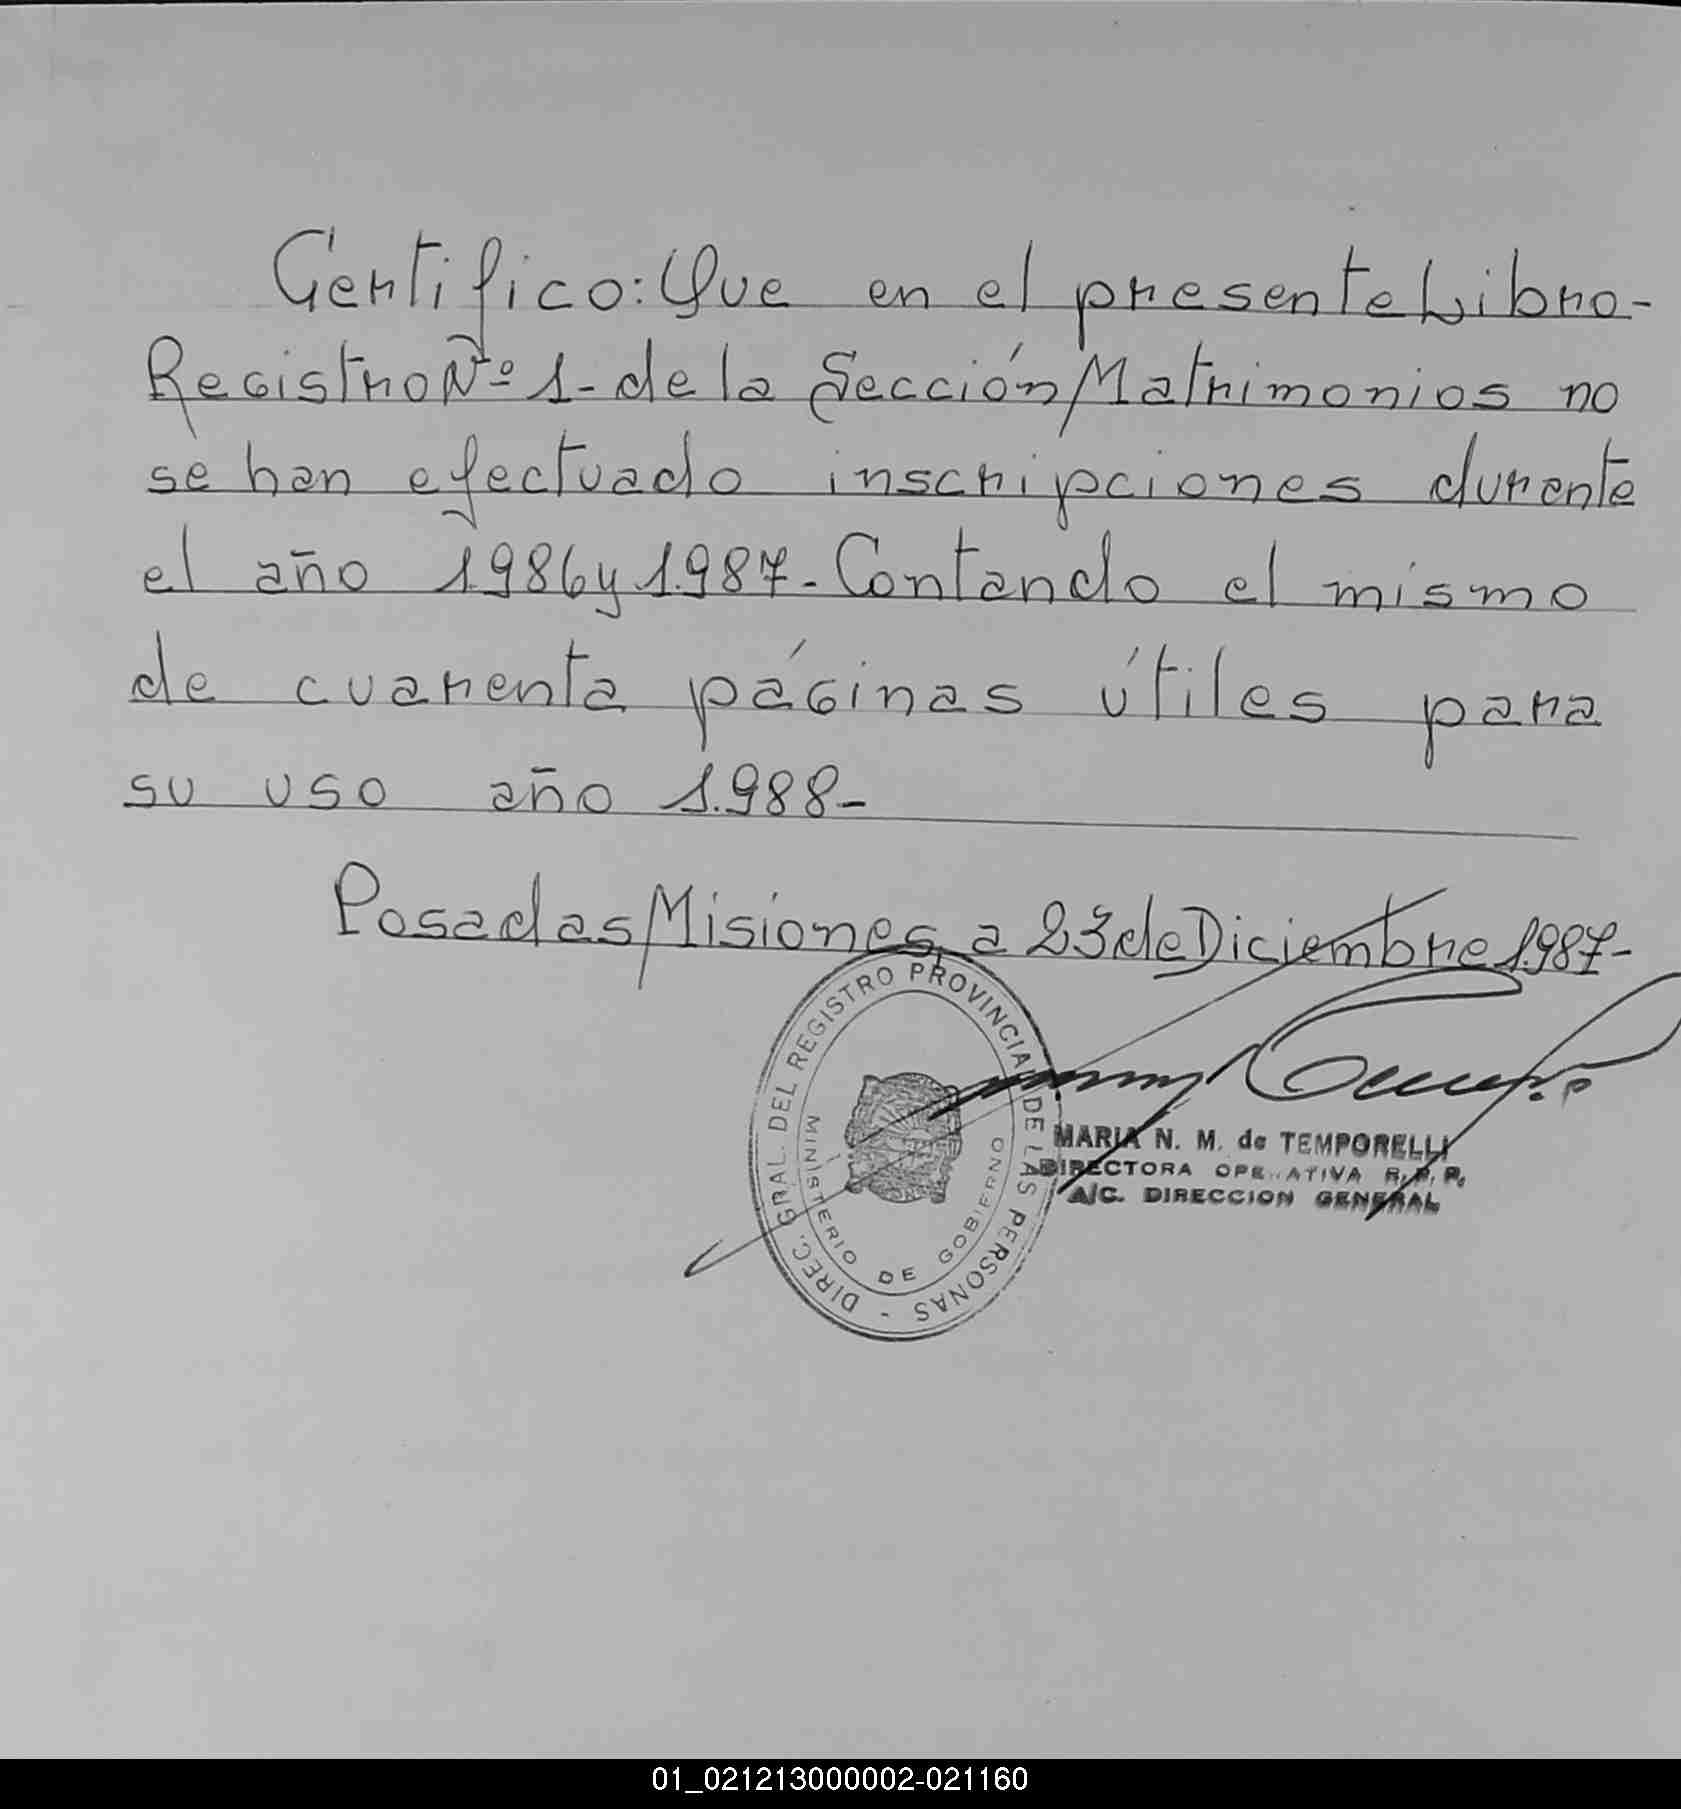 Certifico: Que en el presente Libro-
Registro Nº 1- de la Sección Matrimonios no
se han efectuado inscripciones durante
el año 1986 y 1.987.- Contando el mismo
de cuarenta páginas útiles para
su uso año 1.988-
Posadas Misiones, a 23 de Diciembre 1.987-
DIREC. GRAL. DEL REGISTRO PROVINCIAL DE LAS PERSONAS -
MINISTERIO DE GOBIERNO
MARIA N. M. de TEMPORELLI
DIRECTORA OPE..ATIVA R. P. P.
A/C. DIRECCION GENERAL
01_021213000002-021160